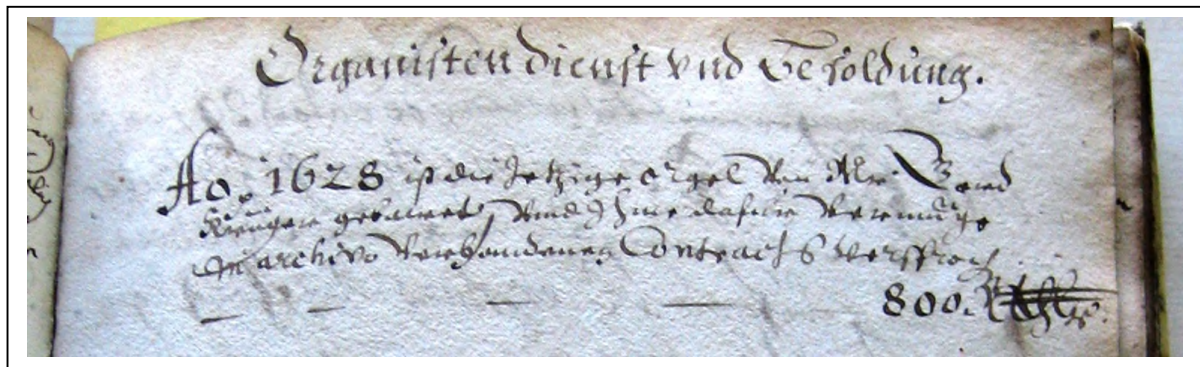 Organisten dienst vnd Besoldung.
Ao. 1628 ist die Jetzige orgel von Mr. Berend
gebauwet, vnd Ihme dafür vermüge
In archivo verhandenen Contracts versprochen
800. Rthlr.